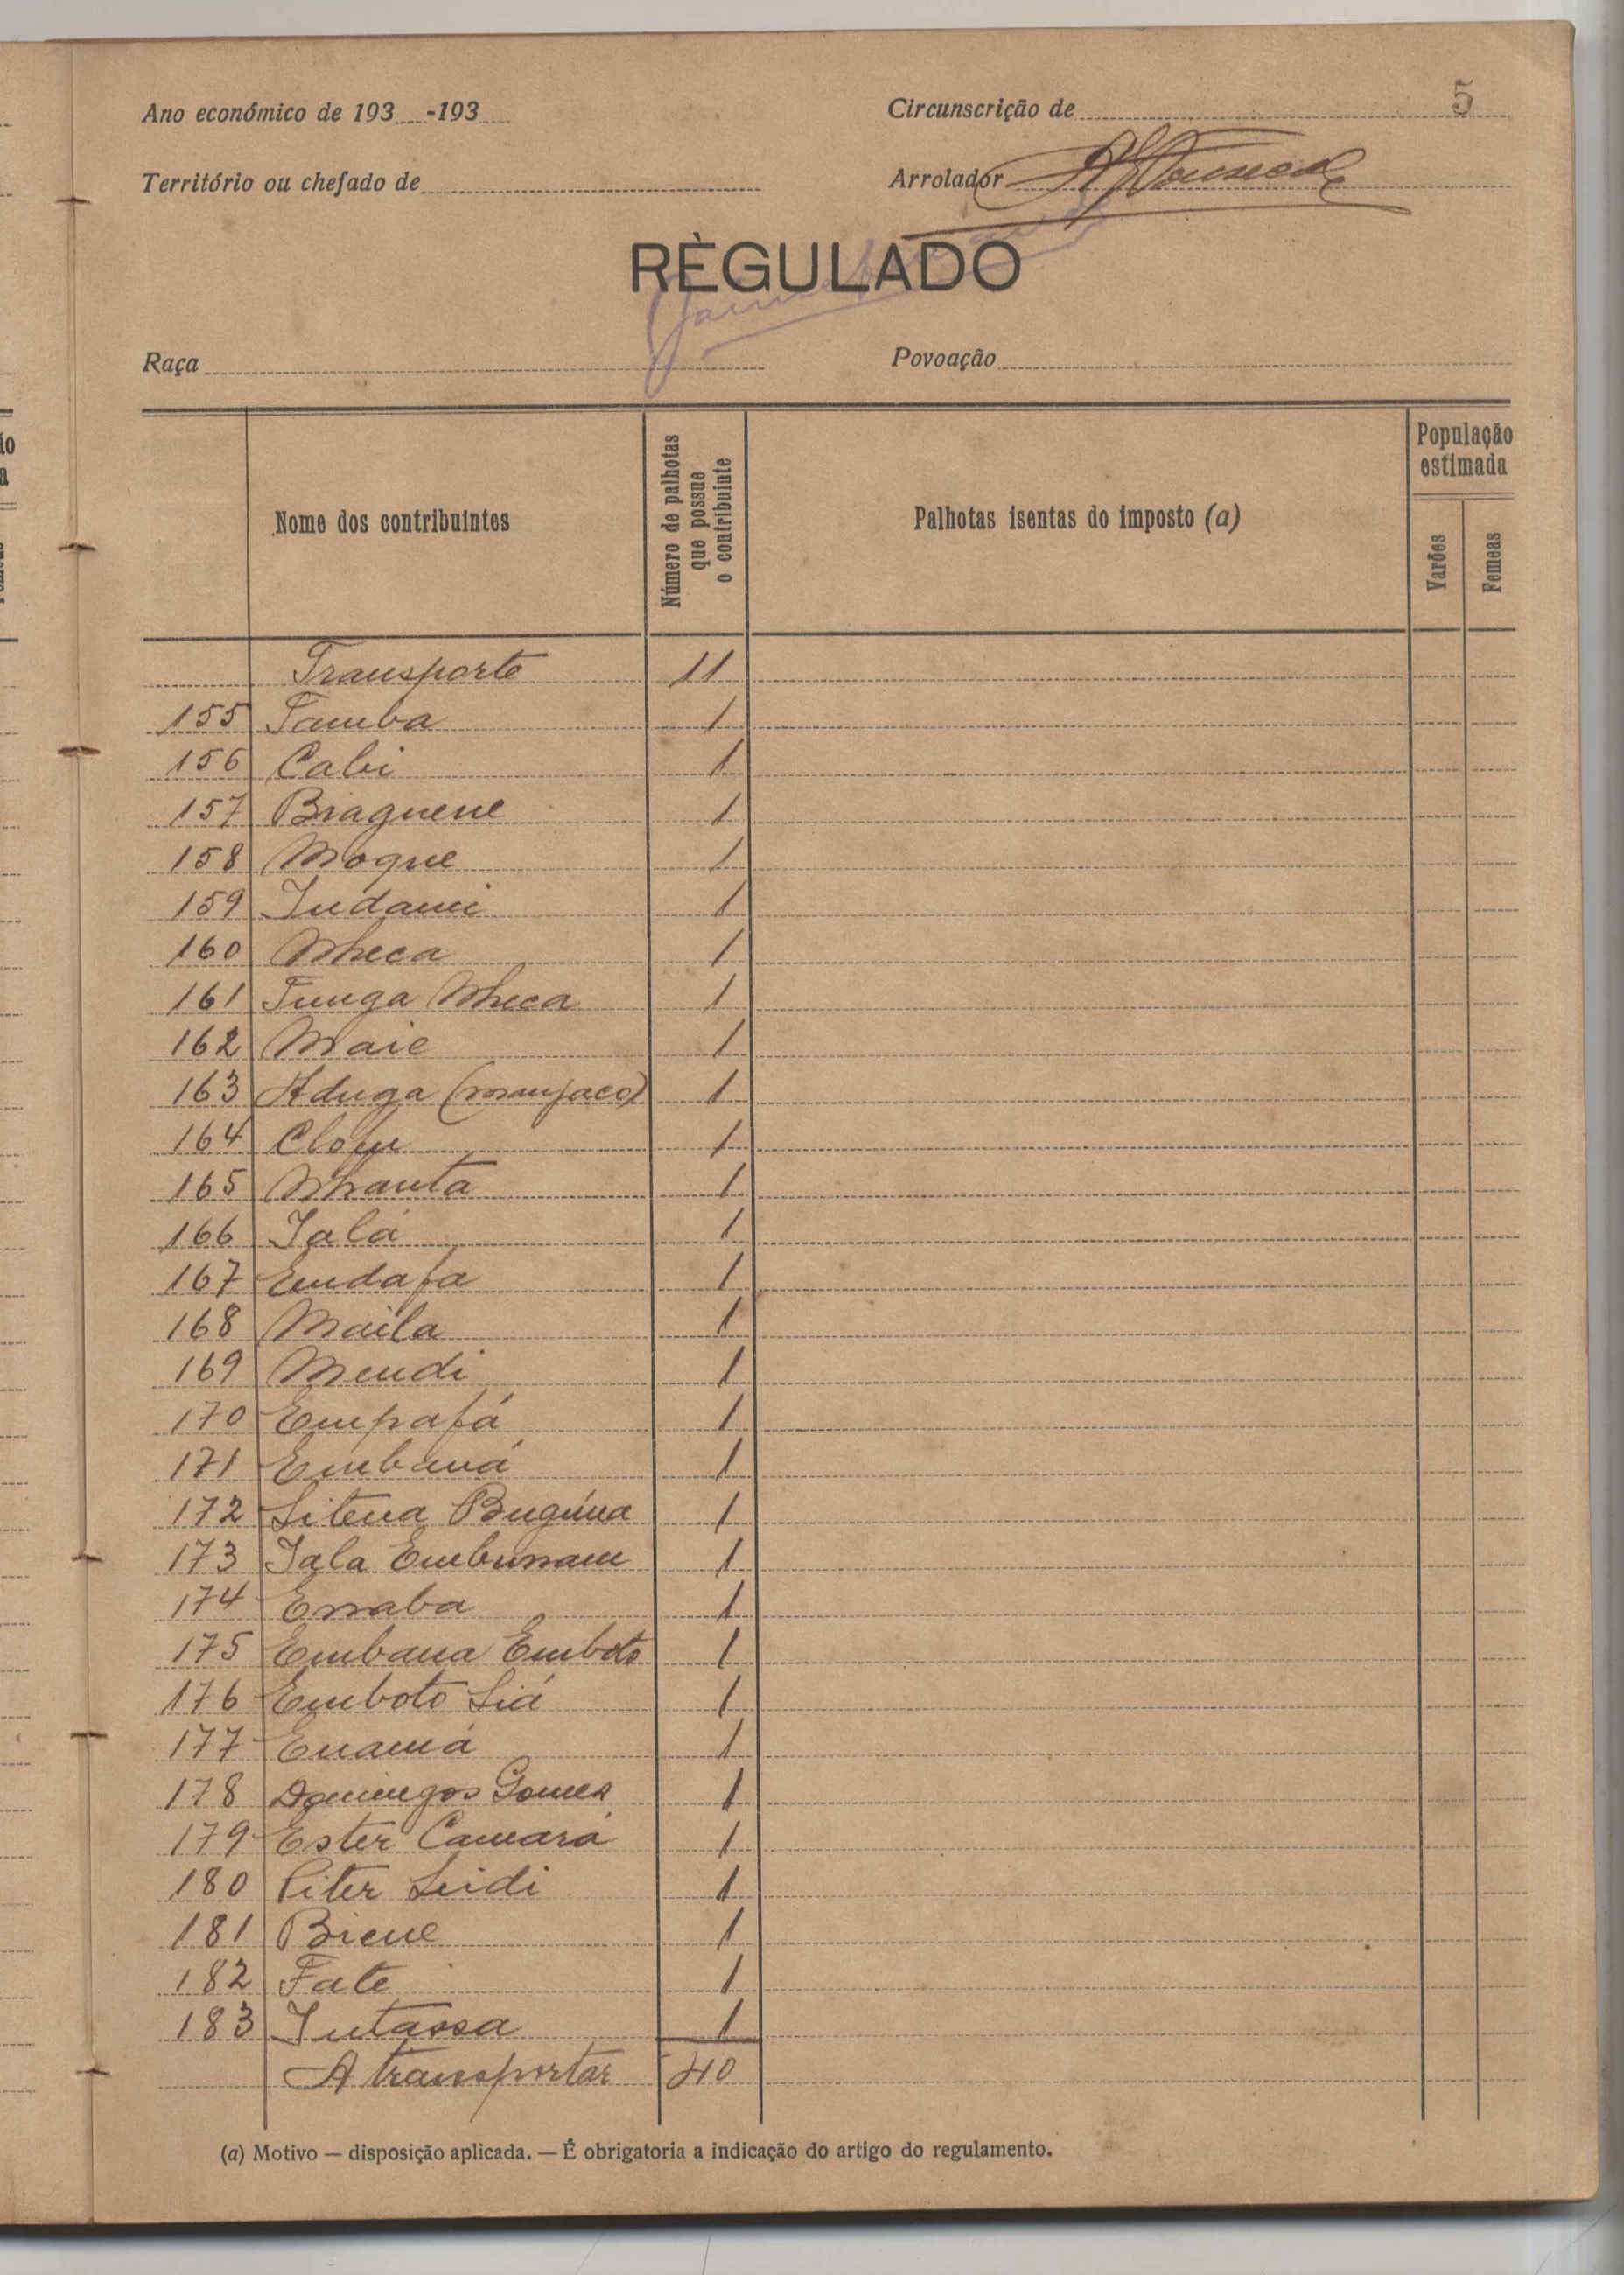 5
Ano económico de 193 -193
Circunscrição de
Território ou chefado de
Arrolador
RÈGULADO
Raça
Povoação
Nome dos contribuintes
Número de palhotas que possue o contribuinte
Palhotas isentas do imposto (a)
População estimada
Varões
Femeas
Transporte 11
155 Tamba 1
156 Cabi 1
157 Biaguene 1
158 Moque 1
159 Indami 1
160 Nheca 1
161 Funga Nheca 1
162 Maie 1
163 Aduga (manjaco) 1
164 1
165 Nhanta 1
166 Ialá 1
167 Endafa 1
168 Maila 1
169 Mendi 1
170 Empafá 1
171 Embaná 1
172 Sitena Buguna 1
173 Iala Embunam 1
174 Enraba 1
175 Embana Emboto 1
176 Emboto Siá 1
177 Enamá 1
178 Domingos Gomes 1
179 Ester Camará 1
180 Piter Seidi 1
181 Biene 1
182 Fate 1
183 Intassa 1
A transportar 40
(a) Motivo — disposição aplicada. — É obrigatoria a indicação do artigo do regulamento.